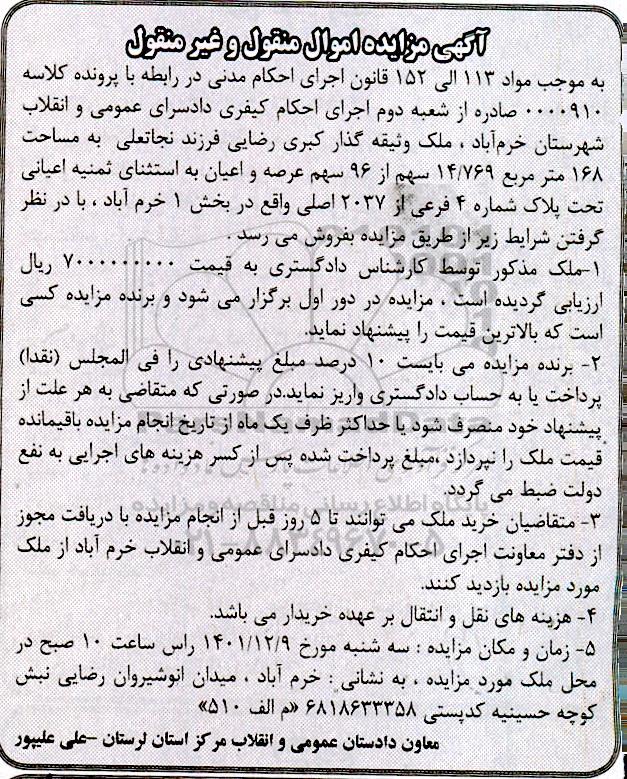 آگهی مزایده اموال منقول و غیر منقول
به موجب مواد ۱۱۳ الی ۱۵۲ قانون اجرای احکام مدنی در رابطه با پرونده کلاسه
۰۰۰۰۹۱۰ صادره از شعبه دوم اجرای احکام کیفری دادسرای عمومی و انقلاب
شهرستان خرم‌آباد ، ملک وثیقه گذار کبری رضایی فرزند نجاتعلی به مساحت
۱۶۸ متر مربع ۱۴/۷۶۹ سهم از ۹۶ سهم عرصه و اعیان به استثنای ثمنیه اعیانی
تحت پلاک شماره ۴ فرعی از ۲۰۳۷ اصلی واقع در بخش ۱ خرم آباد ، با در نظر
گرفتن شرایط زیر از طریق مزایده بفروش می رسد .
۱-ملک مذکور توسط کارشناس دادگستری به قیمت ۷۰۰۰۰۰۰۰۰۰۰ ریال
ارزیابی گردیده است ، مزایده در دور اول برگزار می شود و برنده مزایده کسی
است که بالاترین قیمت را پیشنهاد نماید.
۲- برنده مزایده می بایست ۱۰ درصد مبلغ پیشنهادی را فی المجلس (نقدا)
پرداخت یا به حساب دادگستری واریز نماید.در صورتی که متقاضی به هر علت از
پیشنهاد خود منصرف شود یا حداکثر ظرف یک ماه از تاریخ انجام مزایده باقیمانده
قیمت ملک را نپردازد ،مبلغ پرداخت شده پس از کسر هزینه های اجرایی به نفع
دولت ضبط می گردد.
پایگاه اطلاع رسانی مناقصه و مزایده
۳- متقاضیان خرید ملک می توانند تا ۵ روز قبل از انجام مزایده با دریافت مجوز
۰۲۱-۸۸۳۴۹۶۷۰-۵
از دفتر معاونت اجرای احکام کیفری دادسرای عمومی و انقلاب خرم آباد از ملک
مورد مزایده بازدید کنند.
۴- هزینه های نقل و انتقال بر عهده خریدار می باشد.
۵- زمان و مکان مزایده : سه شنبه مورخ ۱۴۰۱/۱۲/۹ راس ساعت ۱۰ صبح در
محل ملک مورد مزایده ، به نشانی : خرم آباد ، میدان انوشیروان رضایی نبش
کوچه حسینیه کدپستی ۶۸۱۸۶۳۳۳۵۸ «م الف ۵۱۰»
معاون دادستان عمومی و انقلاب مرکز استان لرستان -علی علیپور